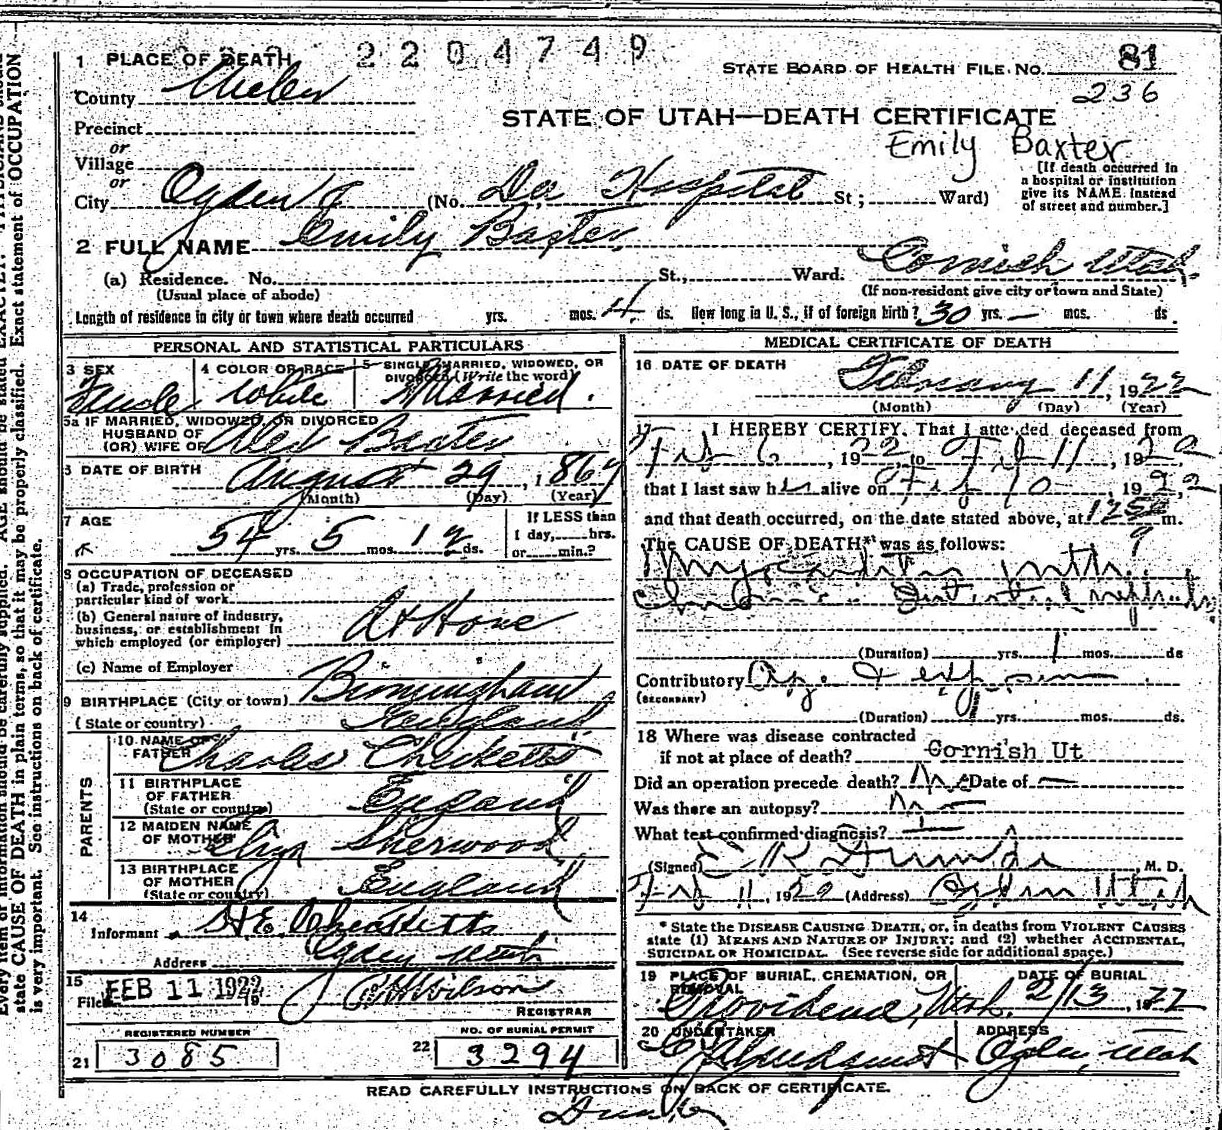 2204749
1 PLACE OF DEATH
STATE BOARD OF HEALTH FILE NO. 81
236
County Weber
STATE OF UTAH—DEATH CERTIFICATE
Precinct
or
Emily Baxter
Village
or
[If death occurred in
a hospital or institution
give its NAME instead
of street and number.]
City Ogden (No. Dee Hospital St; Ward)
2 FULL NAME Emily Baxter
(a) Residence. No. St., Ward. Cornish Utah.
(Usual place of abode) (If non-resident give city or town and State)
Length of residence in city or town where death occurred yrs. mos. 4 ds. How long in U. S., if of foreign birth? 30 yrs. — mos. ds
PERSONAL AND STATISTICAL PARTICULARS
3 SEX 4 COLOR OR RACE 5 SINGLE, MARRIED, WIDOWED, OR
DIVORCED (Write the word)
Female White Married.
5a IF MARRIED, WIDOWED, OR DIVORCED
HUSBAND OF
(OR) WIFE OF Alex Baxter
6 DATE OF BIRTH August 29, 1867
(Month) (Day) (Year)
7 AGE
54 yrs. 5 mos. 12 ds.
If LESS than
1 day, hrs.
or min.?
8 OCCUPATION OF DECEASED
(a) Trade, profession or
particular kind of work
(b) General nature of industry,
business, or establishment in
which employed (or employer) At Home
(c) Name of Employer
9 BIRTHPLACE (City or town) Birmingham
(State or country) England
PARENTS
10 NAME OF
FATHER Charles Checketts
11 BIRTHPLACE
OF FATHER
(State or country) England
12 MAIDEN NAME
OF MOTHER Eliza Sherwood
13 BIRTHPLACE
OF MOTHER
(State or country) England
14
Informant H E Checketts
Address Ogden Utah
15
Filed FEB 11 1922 Wilson
REGISTRAR
REGISTERED NUMBER NO. OF BURIAL PERMIT
21 3085 22 3294
MEDICAL CERTIFICATE OF DEATH
16 DATE OF DEATH
February 11, 1922
(Month) (Day) (Year)
17 I HEREBY CERTIFY, That I attended deceased from
Feb 6, 1922, to Feb 11, 1922
that I last saw her alive on Feb 10 1922
and that death occurred, on the date stated above, at m.
The CAUSE OF DEATH* was as follows:
Myocarditis with
Chronic Interstitial nephritis
(Duration) yrs. 1 mos. ds
Contributory
(SECONDARY)
(Duration) yrs. mos. ds.
18 Where was disease contracted
if not at place of death? Cornish Ut
Did an operation precede death? No Date of —
Was there an autopsy? No
What test confirmed diagnosis?
(Signed) E R Dumke M. D.
Feb 11, 1922 (Address) Ogden Utah
* State the DISEASE CAUSING DEATH, or, in deaths from VIOLENT CAUSES
state (1) MEANS AND NATURE OF INJURY; and (2) whether ACCIDENTAL,
SUICIDAL OR HOMICIDAL. (See reverse side for additional space.)
19 PLACE OF BURIAL, CREMATION, OR
REMOVAL
DATE OF BURIAL
Providence, Utah. 2/13, 1922
20 UNDERTAKER ADDRESS
Lindquist Ogden, Utah
READ CAREFULLY INSTRUCTIONS ON BACK OF CERTIFICATE.
Dumke
state CAUSE OF DEATH in plain terms, so that it may be properly classified. Exact statement of OCCUPATION
is very important. See instructions on back of certificate.